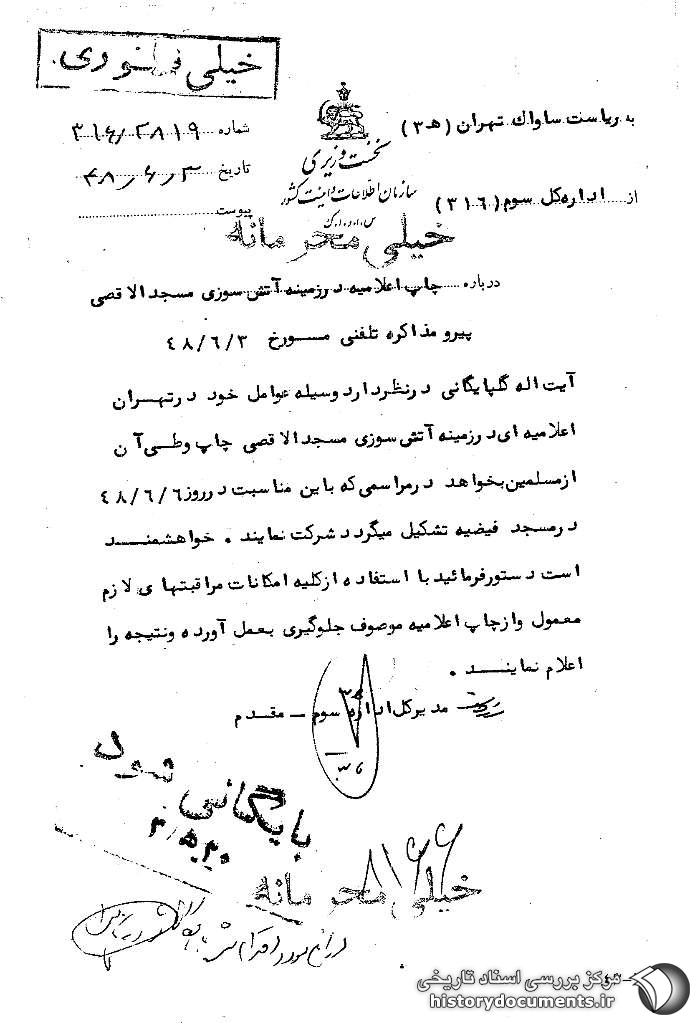 خیلی فوری
به ریاست ساواك تهران (ه‍ ۳)
شماره ۳۱۶/۲۸۱۹
نخست وزیری
تاریخ ۴۸/۶/۳
سازمان اطلاعات و امنیت کشور
از اداره کل سوم (۳۱۶)
پیوست
س.ا.و.ا.ک
خیلی محرمانه
درباره چاپ اعلامیه درزمینه آتش سوزی مسجدالاقصی
پیرو مذاکره تلفنی مــورخ ۴۸/۶/۳
آیت اله گلپایگانی درنظردارد وسیله عوامل خود درتهــران
اعلامیه ای درزمینه آتش سوزی مسجدالاقصی چاپ وطــی آن
ازمسلمین بخواهد درمراسمی که باین مناسبت درروز ۴۸/۶/۶
درمسجد فیضیه تشکیل میگردد شرکت نمایند . خواهشمنــد
است دستورفرمائید با استفاده ازکلیه امکانات مراقبتهای لازم
معمول وازچاپ اعلامیه موصوف جلوگیری بعمل آورده ونتیجه را
اعلام نماینــد .
مدیرکل اداره سوم ــ مقــدم
بایگانی شود
خیلی محرمانه
مرکز بررسی اسناد تاریخی
historydocuments.ir